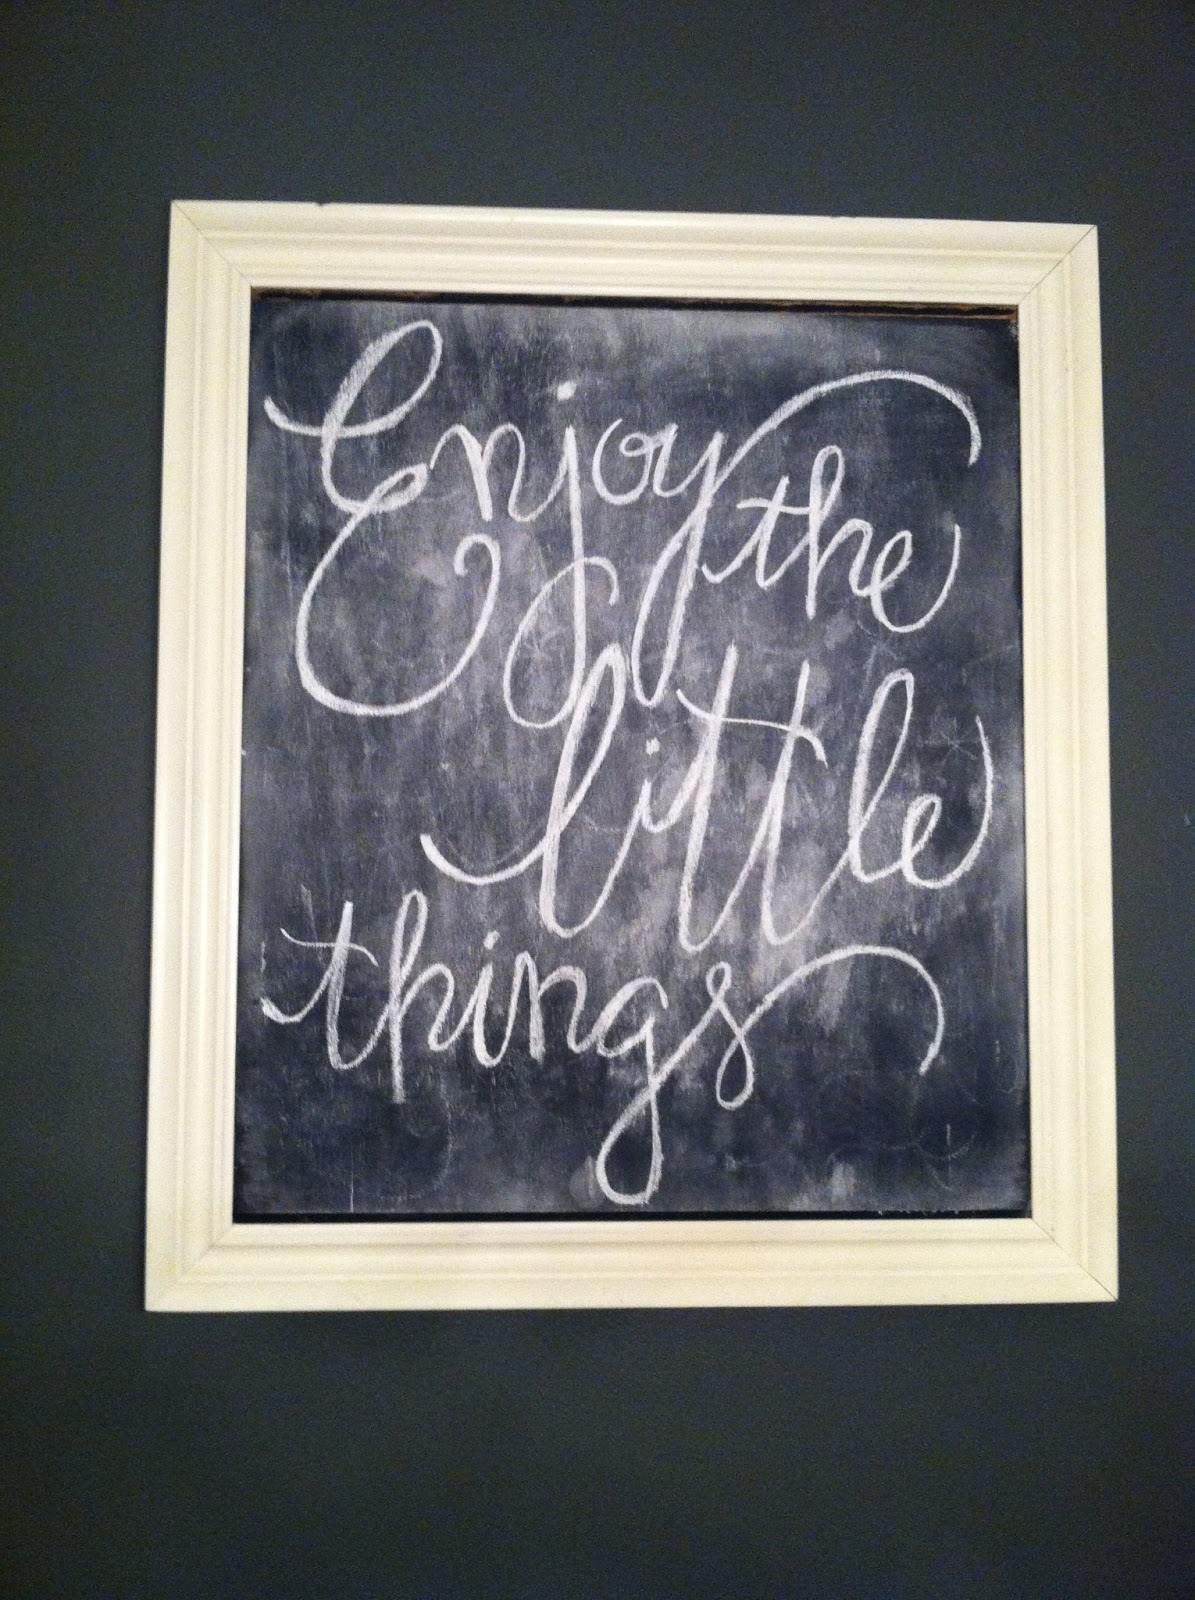 Enjoy the
little
things